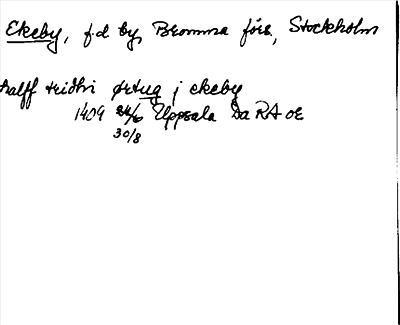 Ekeby, f.d by, Bromma förs., Stockholm
halff tridhi ørtug j ekeby
1409 24/6 Uppsala Da RA oE
30/8